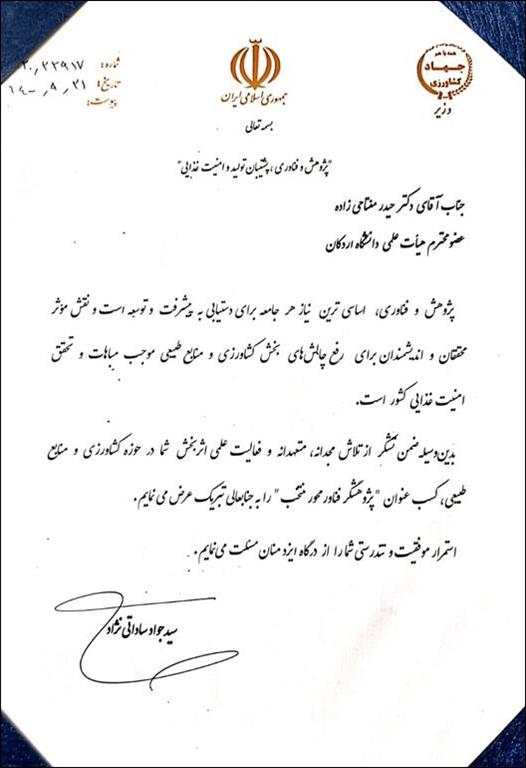 شماره: ۲۰٫۲۳۹۱۷
تاریخ: ۱۴۰۰٫۹٫۲۱
پیوست:
جمهوری اسلامی ایران
همه با هم
جهاد
کشاورزی
وزیر
بسمه تعالی
"پژوهش و فناوری، پشتیبان تولید و امنیت غذایی"
جناب آقای دکتر حیدر مفتاحی زاده
عضو محترم هیأت علمی دانشگاه اردکان
پژوهش و فناوری، اساسی ترین نیاز هر جامعه برای دستیابی به پیشرفت و توسعه است و نقش مؤثر
محققان و اندیشمندان برای رفع چالش‌های بخش کشاورزی و منابع طبیعی موجب مباهات و تحقق
امنیت غذایی کشور است.
بدین‌وسیله ضمن تشکر از تلاش مجدانه، متعهدانه و فعالیت علمی اثربخش شما در حوزه کشاورزی و منابع
طبیعی، کسب عنوان "پژوهشگر فناور محور منتخب" را به جنابعالی تبریک عرض می نمایم.
استمرار موفقیت و تندرستی شما را از درگاه ایزد منان مسئلت می‌نمایم.
سید جواد ساداتی نژاد